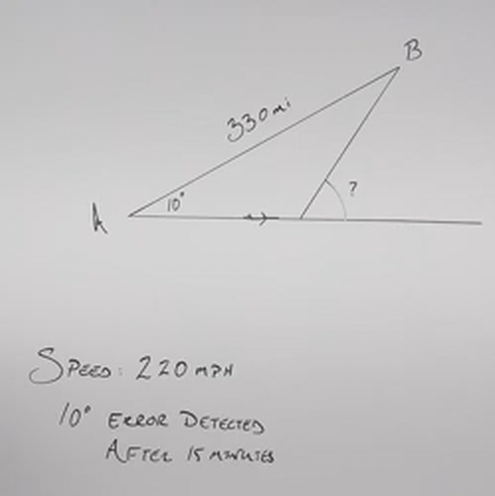 B
330mi
?
10°
A
SPEED: 220 MPH
10° ERROR DETECTED
AFTER 15 MINUTES